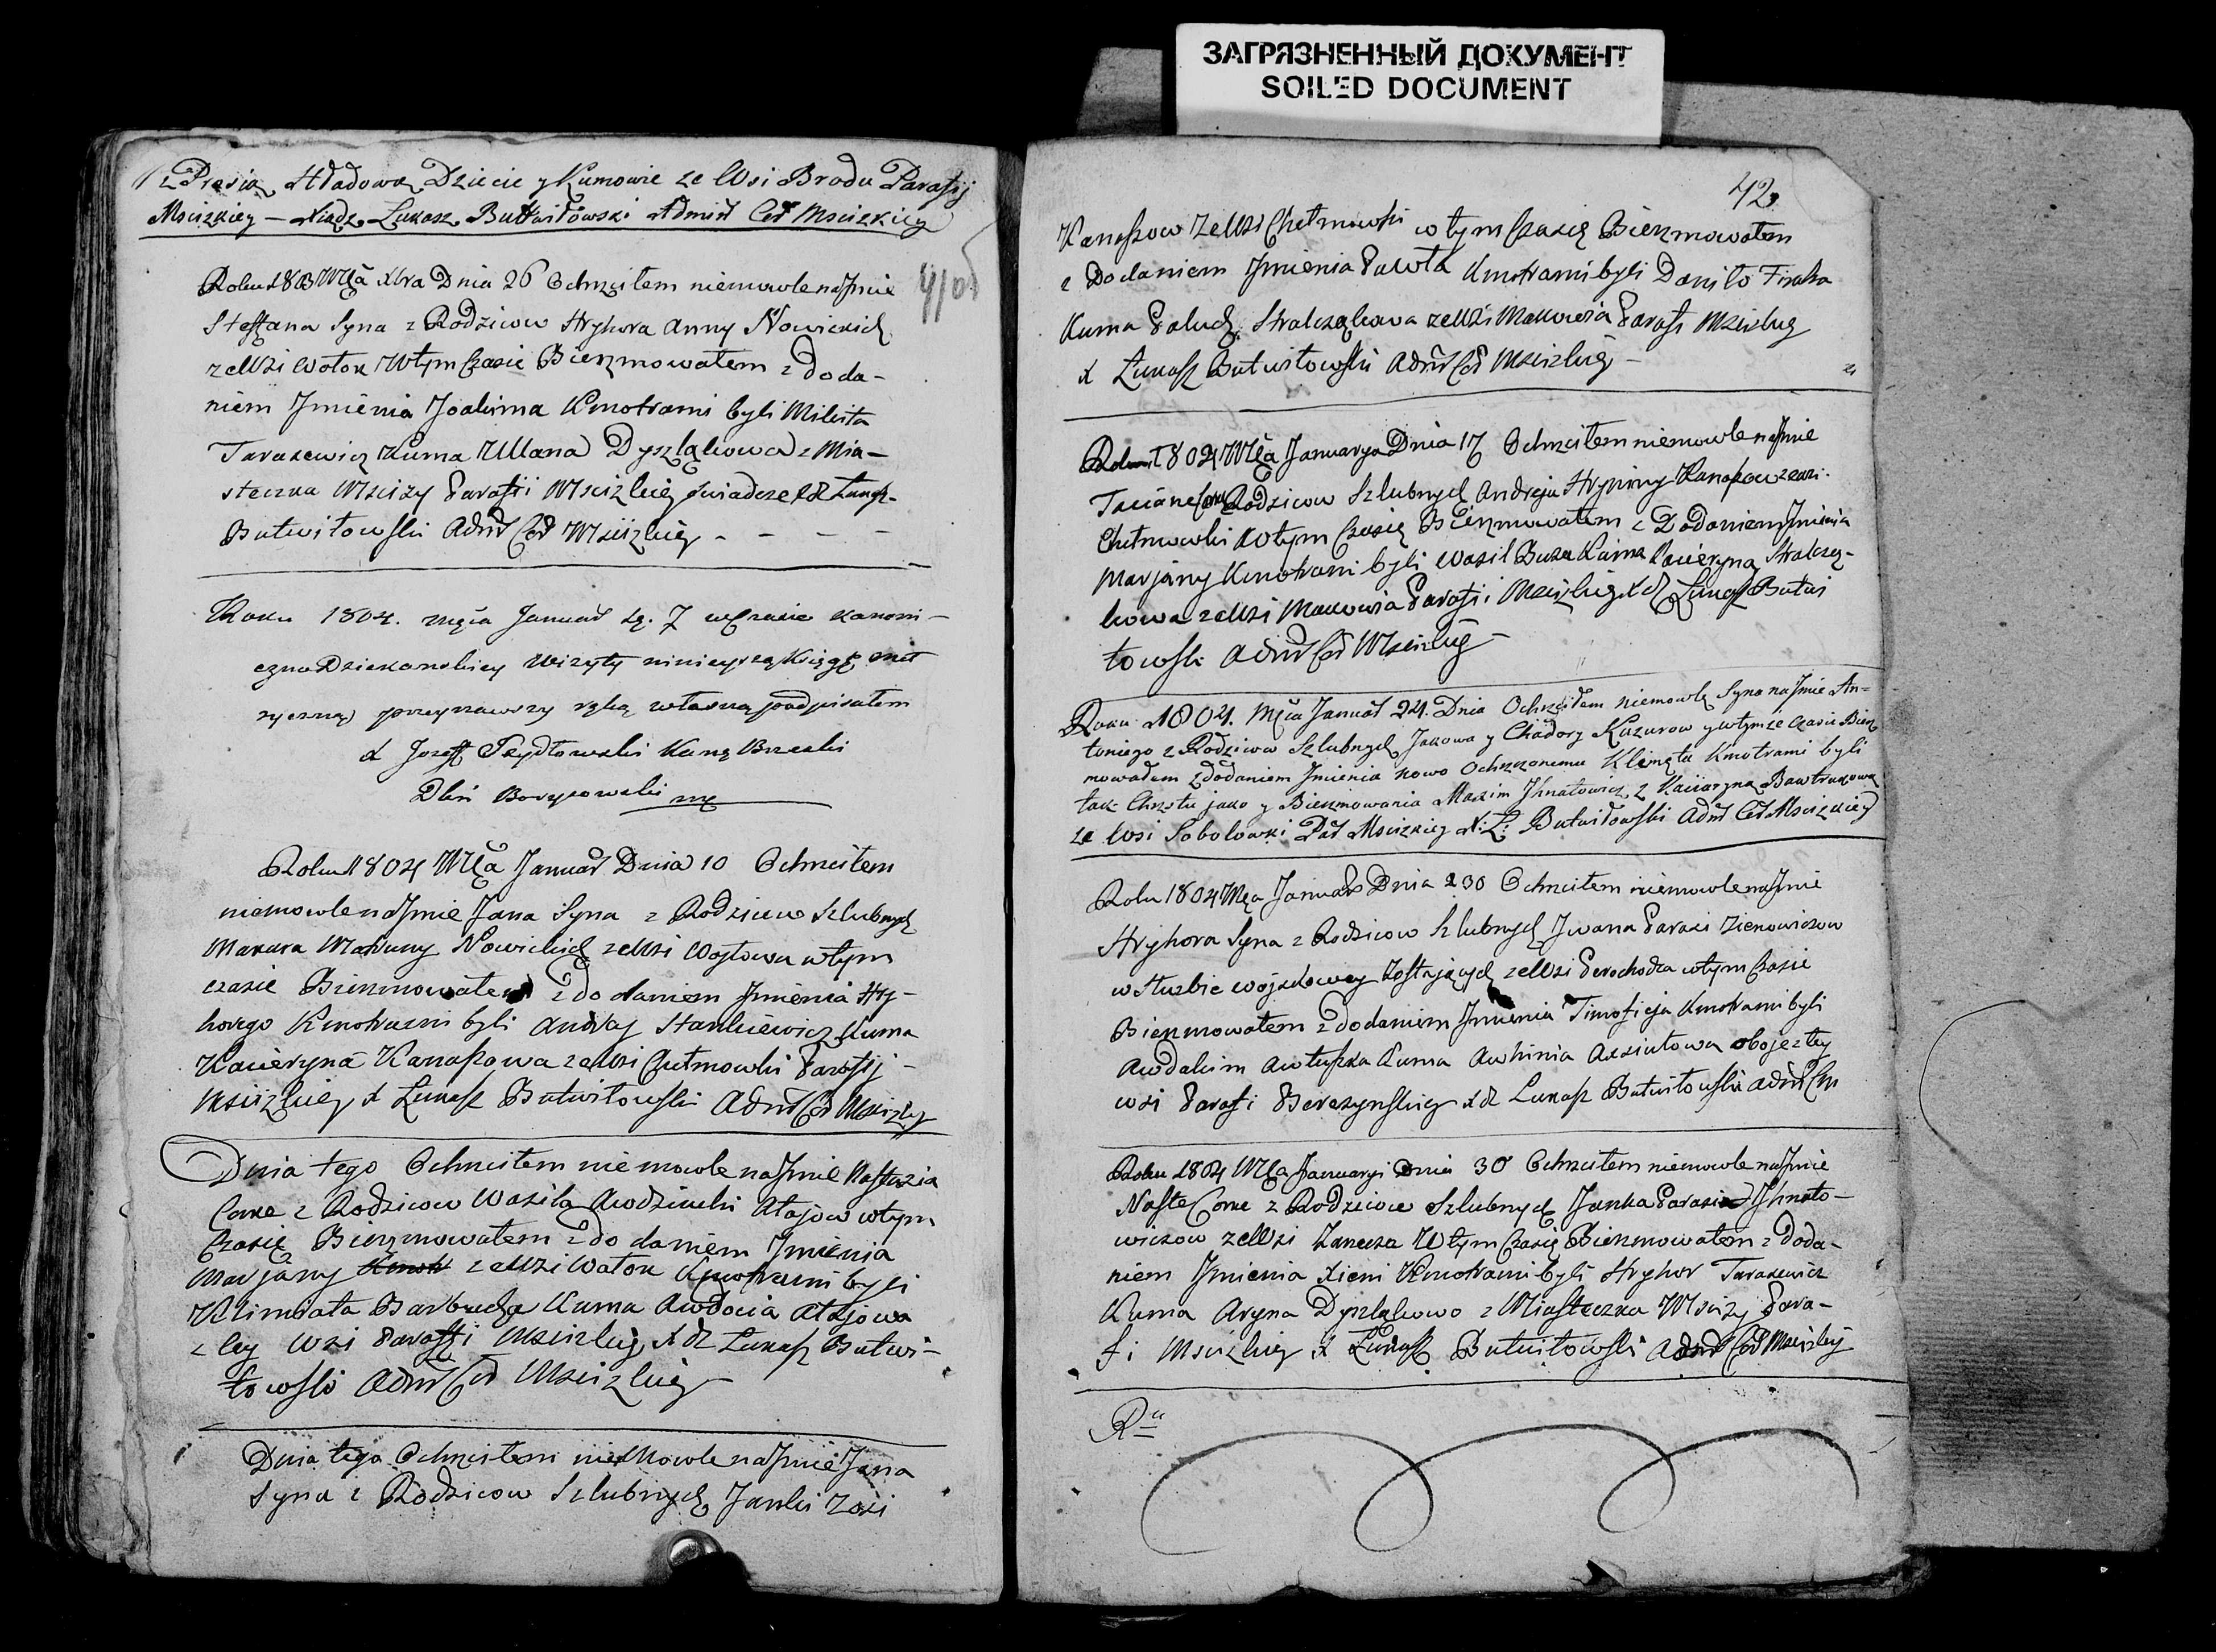 ЗАГРЯЗНЕННЫЙ ДОКУМЕНТ
SOILED DOCUMENT
z Prasią Hładową Dziecie y Kumowie ze Wsi Brodu Parafij
Mscizkiey — Xiądz Łukasz Butwiłowski Admint Cer Mscizkiey
Roku 1803 Mca Xbra Dnia 26 Ochrzciłem niemowle na Jmie
Steffana Syna z Rodzicow Hryhora Anny Nowickich
ze Wsi Wołok W tym Czasie Bierzmowałem z doda-
niem Jmienia Joakima Kmotrami byli Mikita
Tarasewicz Kuma Ullana Dyszląkowa z Mia-
steczka Mscizy Parafii Mscizkiey swiadcze X Łukasz
Butwiłowski Admt Cer Mscizkiey - - - -
Roku 1804. mca Januar 7 w czasie kanoni-
czno Dziekanskiey Wizyty ninieyszą Xięgę met
ryczną przeyrzawszy ręką własną podpisałem
X Jozeff Szydłowski Kano Brzeski
Dzń Borysowski mp
Roku 1804 Mca Januar Dnia 10 Ochrzciłem
niemowle na Jmie Jana Syna z Rodzicow Szlubnych
Makara Matruny Nowickich ze Wsi Woytowa w tym
czasie Bierzmowałem z dodaniem Jmienia Hry-
horego Kmotrami byli Andrey Stankiewicz Kuma
Kacieryna Kanaszowa ze Wsi Chełmowki Parafij -
Mscizkiey X Łukasz Butwiłowski Admt Cer Mscizkiey
Dnia tego Ochrzciłem niemowle na Jmie Nastazia
Corke z Rodzicow Wasila Awdziucki Atajow w tym
Czasie Bierzmowałem z dodaniem Jmienia
Marjany ze Wsi Wołok Kmotrami byli
Kuma Awdocia Atajowa
z tey Wsi Paraffi Mscizkiey X Łukasz Butwi-
łowski Admt Cer Mscizkiey —
Dnia tego Ochrzciłem niemowle na Jmie Jana
Syna z Rodzicow Szlubnych Janki Zosi
42
Kanaszow ze Wsi Chełmowki w tym Czasie Bierzmowałem
z Dodaniem Jmienia Pawła Kmotrami byli Daniło
Kuma ze Wsi Makowia Parafi Mscizkiey
X Łukasz Butwiłowski Admt Cer Mscizkiey —
Roku 1804 Mca Januarya Dnia 17 Ochrzciłem niemowle na Jmie
Tacianę Corkę Rodzicow Szlubnych Andreja Hrypiny Kanaszow ze Wsi
Chełmowki W tym Czasie Bierzmowałem z Dodaniem Jmienia
Marjany Kmotrami byli Wasil Kuma Kacieryna
kowa ze Wsi Makowia Parafi Mscizkiey X Łukasz Butwi
łowski Admt Cer Mscizkiey —
Roku 1804. Mca Januar 24. Dnia Ochrzciłem niemowlę Syna na Jmie An-
toniego z Rodzicow Szlubnych Jakowa y Chadory Kazurow y w tym ze Czasie Bierz
mowałem z dodaniem Jmienia nowo Ochrzczonemu Klemęta Kmotrami byli
tak Chrztu jako y Bierzmowania Maxim Jhnatowicz z Kacieryną Bawtrukową
ze Wsi Sobolowki Par Mscizkiey X: Ł: Butwiłowski Admt Cer Mscizkiey
Roku 1804 Mca Januar Dnia 30 Ochrzciłem niemowle na Jmie
Hryhora Syna z Rodzicow Szlubnych Jwana Parasi Zienowiczow
w służbie woyskowey zostających ze Wsi Perechodca w tym Czasie
Bierzmowałem z dodaniem Jmienia Timofieja Kmotrami byli
Awdakim Kuma Awhinia oboje z tey
wsi Parafi Berezynskiey X Łukasz Butwiłowski Admt Cer
Roku 1804 Mca Januaryi Dnia 30 Ochrzciłem niemowle na Jmie
Naste Corke z Rodzicow Szlubnych Janka Parasi Jhnato-
wiczow ze Wsi W tym Czasie Bierzmowałem z doda-
niem Jmienia Xieni Kmotrami byli Hryhor Tarasewicz
Kuma Aryna Dyszląkowo z Miasteczka Mscizy Para-
fi Mscizkiey X Łukasz Butwiłowski Admt Cer Mscizkiey
Ru